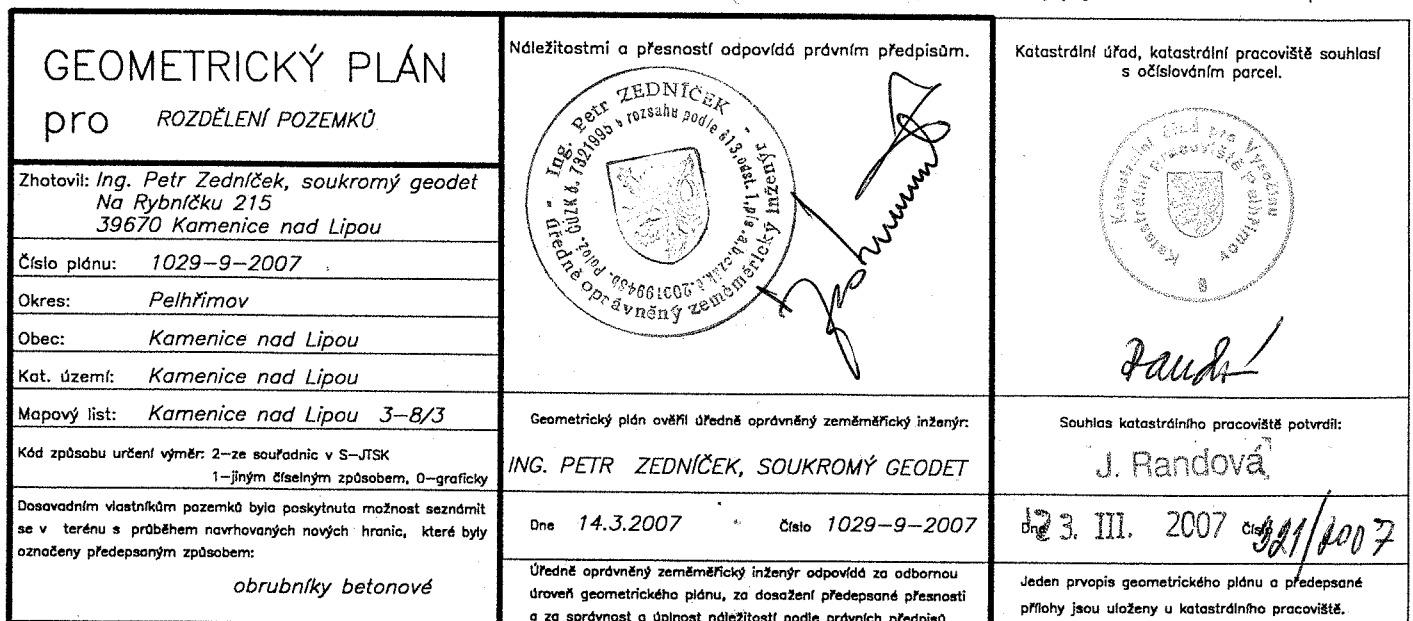 GEOMETRICKÝ PLÁN
pro ROZDĚLENÍ POZEMKŮ
Zhotovil: Ing. Petr Zedníček, soukromý geodet
Na Rybníčku 215
39670 Kamenice nad Lipou
Číslo plánu: 1029-9-2007
Okres: Pelhřimov
Obec: Kamenice nad Lipou
Kat. území: Kamenice nad Lipou
Mapový list: Kamenice nad Lipou 3-8/3
Kód způsobu určení výměr: 2-ze souřadnic v S-JTSK
1-jiným číselným způsobem, 0-graficky
Dosavadním vlastníkům pozemků byla poskytnuta možnost seznámit
se v terénu s průběhem navrhovaných nových hranic, které byly
označeny předepsaným způsobem:
obrubníky betonové
Náležitostmi a přesností odpovídá právním předpisům.
Ing. Petr ZEDNÍČEK
úředně oprávněný zeměměřický inženýr
Geometrický plán ověřil úředně oprávněný zeměměřický inženýr:
ING. PETR ZEDNÍČEK, SOUKROMÝ GEODET
Dne 14.3.2007 Číslo 1029-9-2007
Úředně oprávněný zeměměřický inženýr odpovídá za odbornou
úroveň geometrického plánu, za dosažení předepsané přesnosti
a za správnost a úplnost náležitostí podle právních předpisů
Katastrální úřad, katastrální pracoviště souhlasí
s očíslováním parcel.
Katastrální úřad pro Vysočinu
Katastrální pracoviště Pelhřimov
8
Souhlas katastrálního pracoviště potvrdil:
J. Randová
Dne 23. III. 2007 Číslo 321/2007
Jeden prvopis geometrického plánu a předepsané
přílohy jsou uloženy u katastrálního pracoviště.